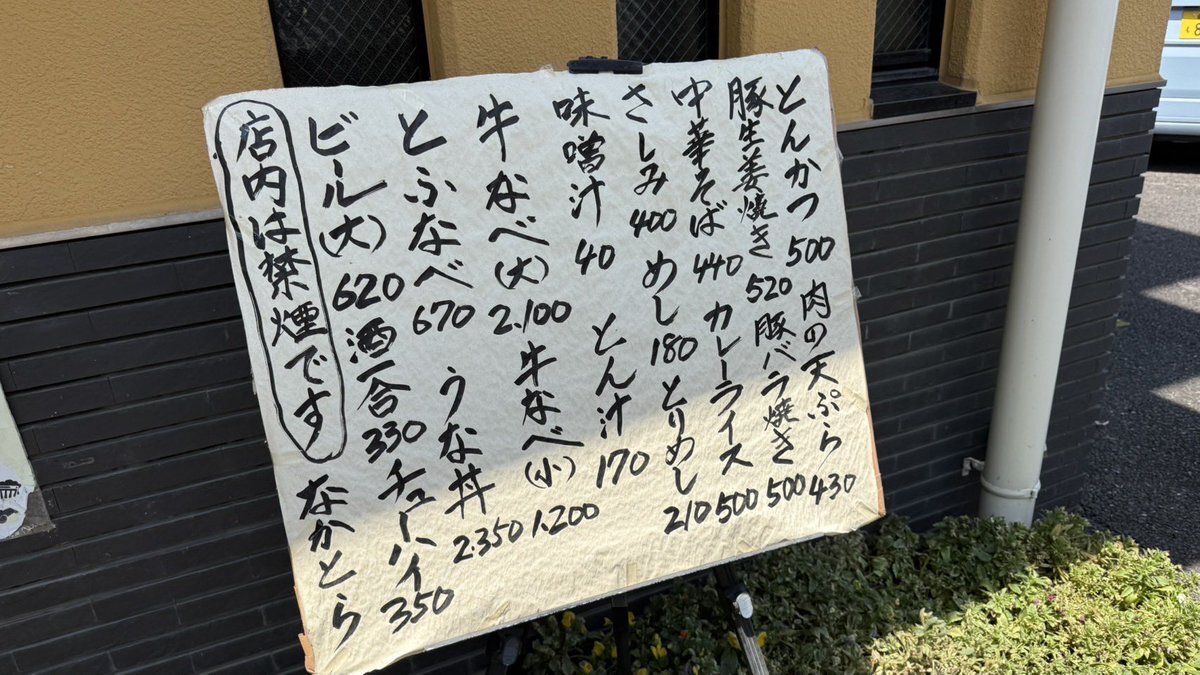 とんかつ 500 肉の天ぷら 430
豚生姜焼き 520 豚バラ焼き 500
中華そば 440 カレーライス 500
さしみ 400 めし 180 とりめし 210
味噌汁 40 とん汁 170
牛なべ(大) 2.100 牛なべ(小) 1.200
とふなべ 670 うな丼 2.350
ビール(大) 620 酒一合 330 チューハイ 350
店内は禁煙です なかとら